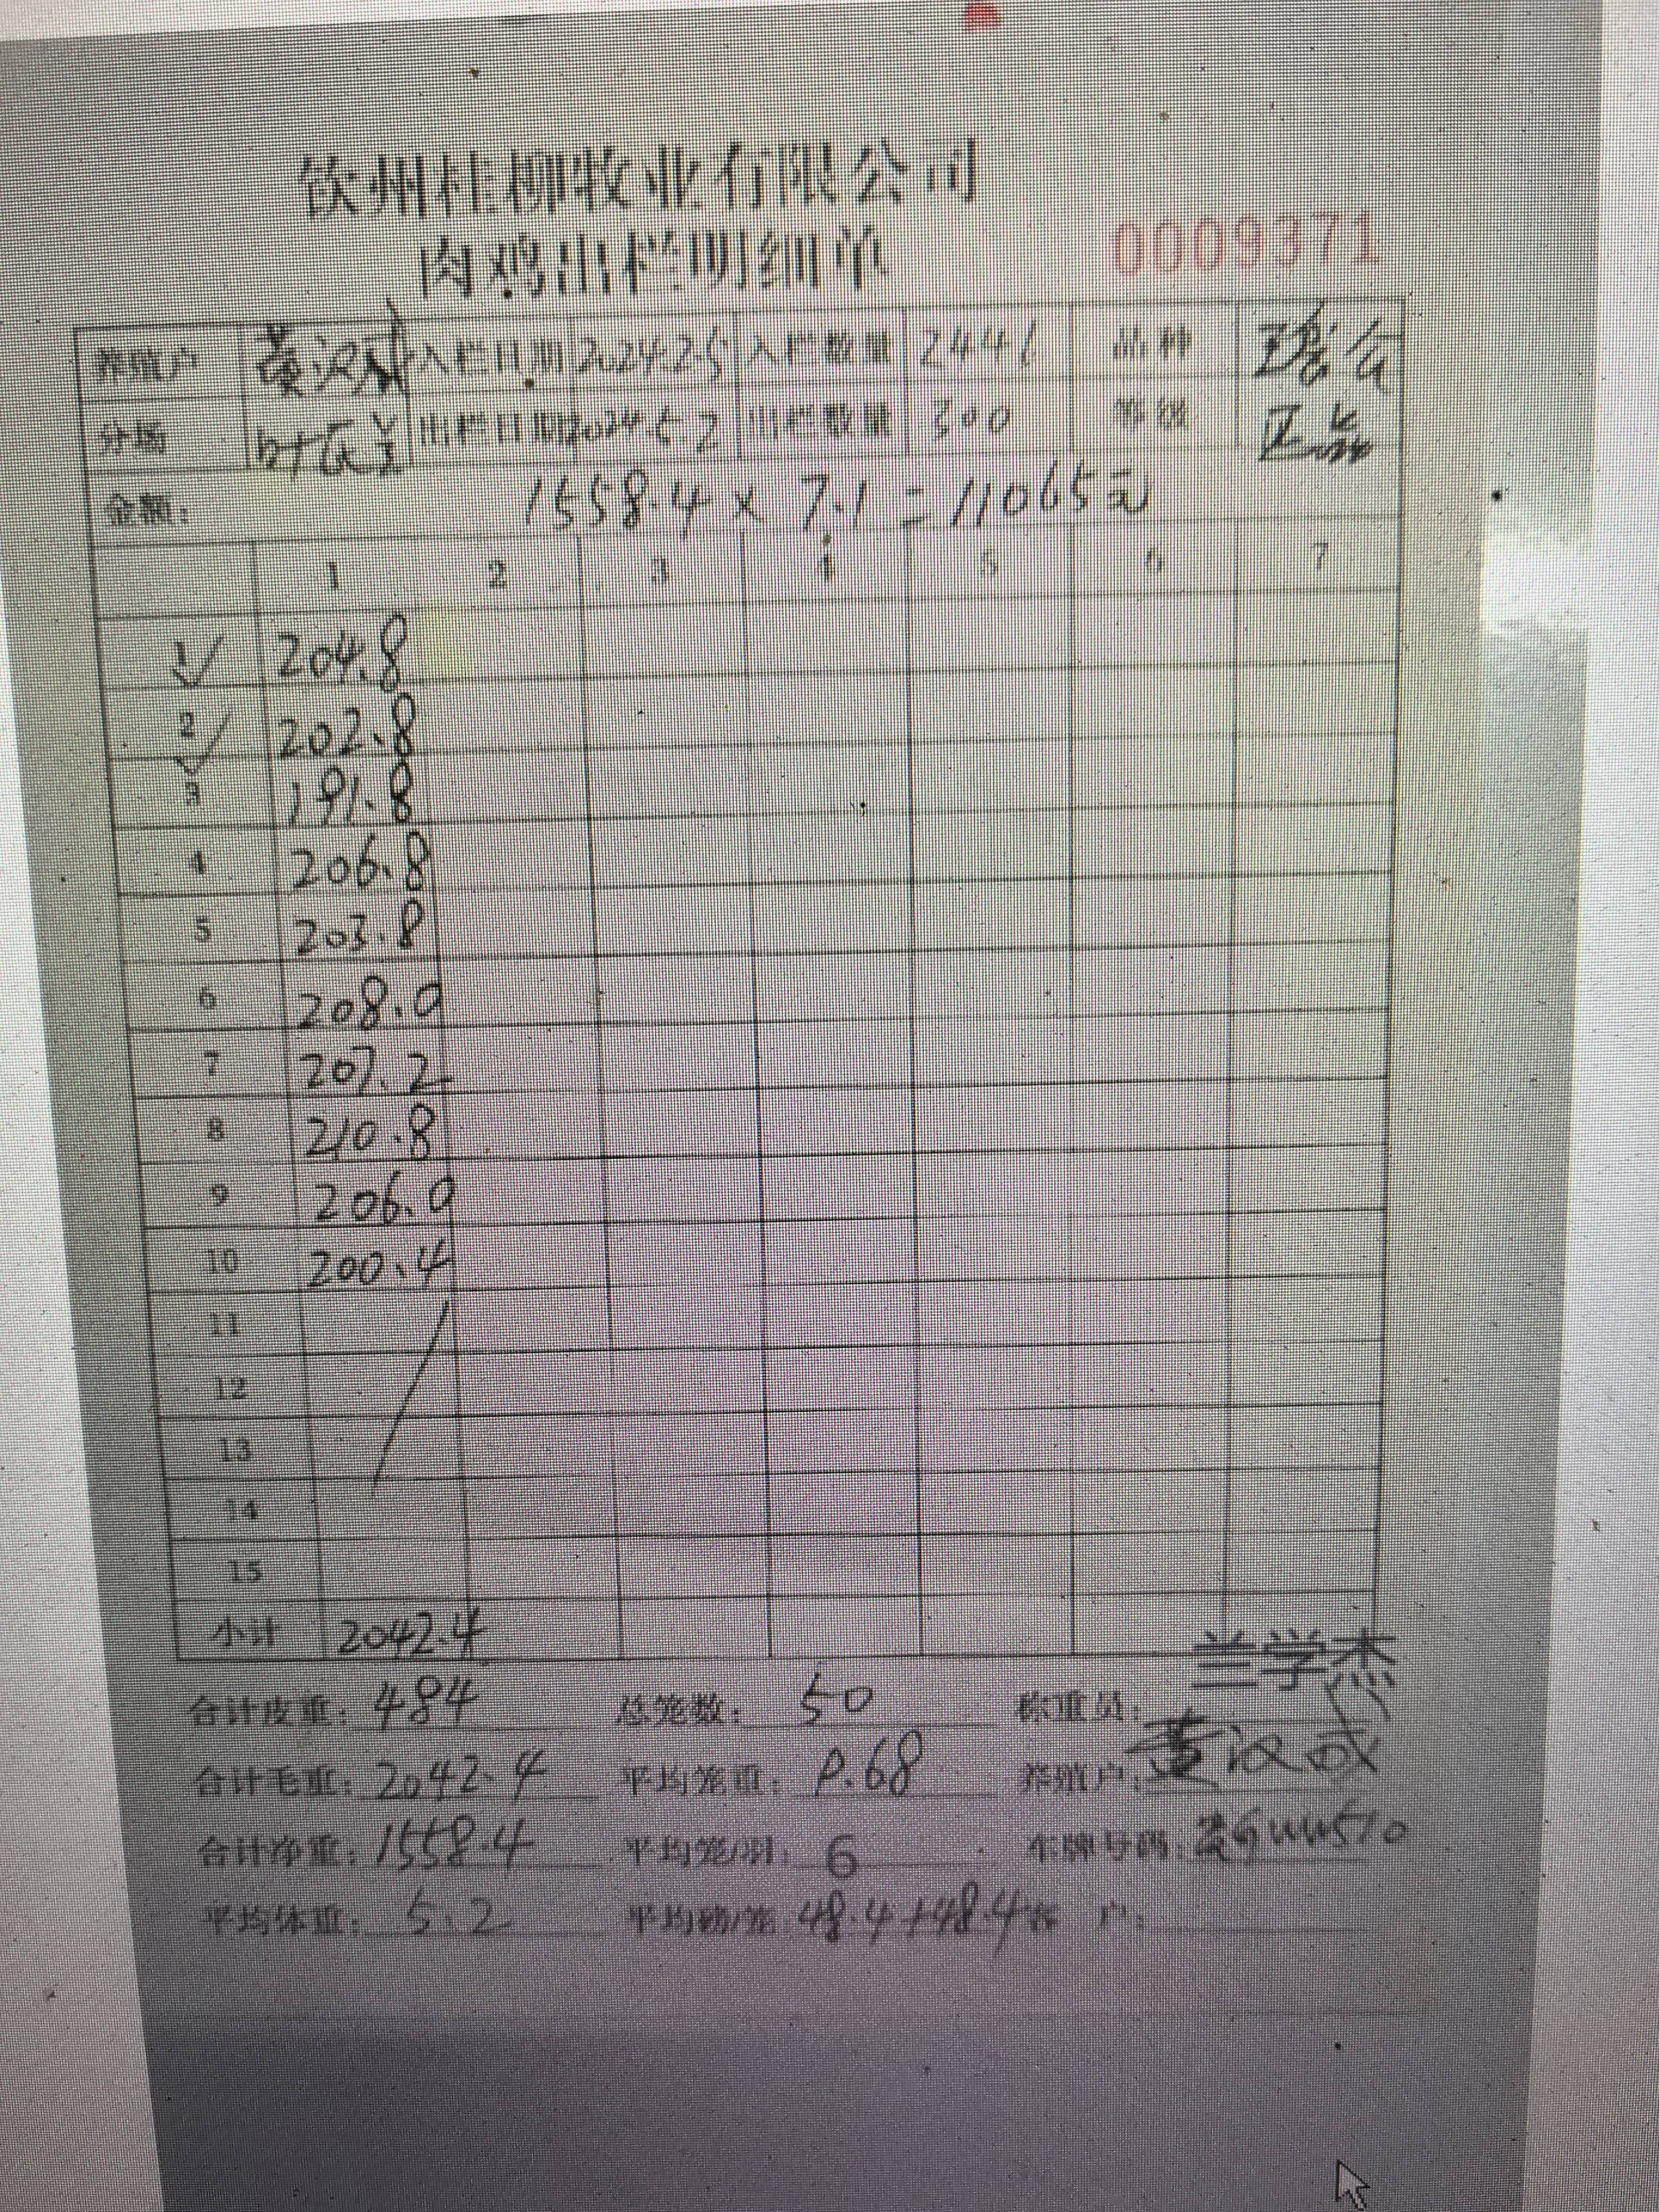 钦州桂柳牧业有限公司
肉鸡出栏明细单 0009371
养殖户 黄汉成 入栏日期 2024.2.5 入栏数量 2441 品种 瑶公
分场 出栏日期 2024.5.2 出栏数量 300 等级 正品
金额: 1558.4 × 7.1 = 11065元
1 2 3 4 5 6 7
1 204.8
2 202.8
3 191.8
4 206.8
5 203.8
6 208.0
7 207.2
8 210.8
9 206.0
10 200.4
11
12
13
14
15
小计 2042.4
合计皮重: 484 总笼数: 50 称重员: 兰学杰
合计毛重: 2042.4 平均笼重: 9.68 养殖户: 黄汉成
合计净重: 1558.4 平均笼/只: 6 车牌号码:
平均体重: 5.2 平均磅/笼 48.4+48.4 客 户: